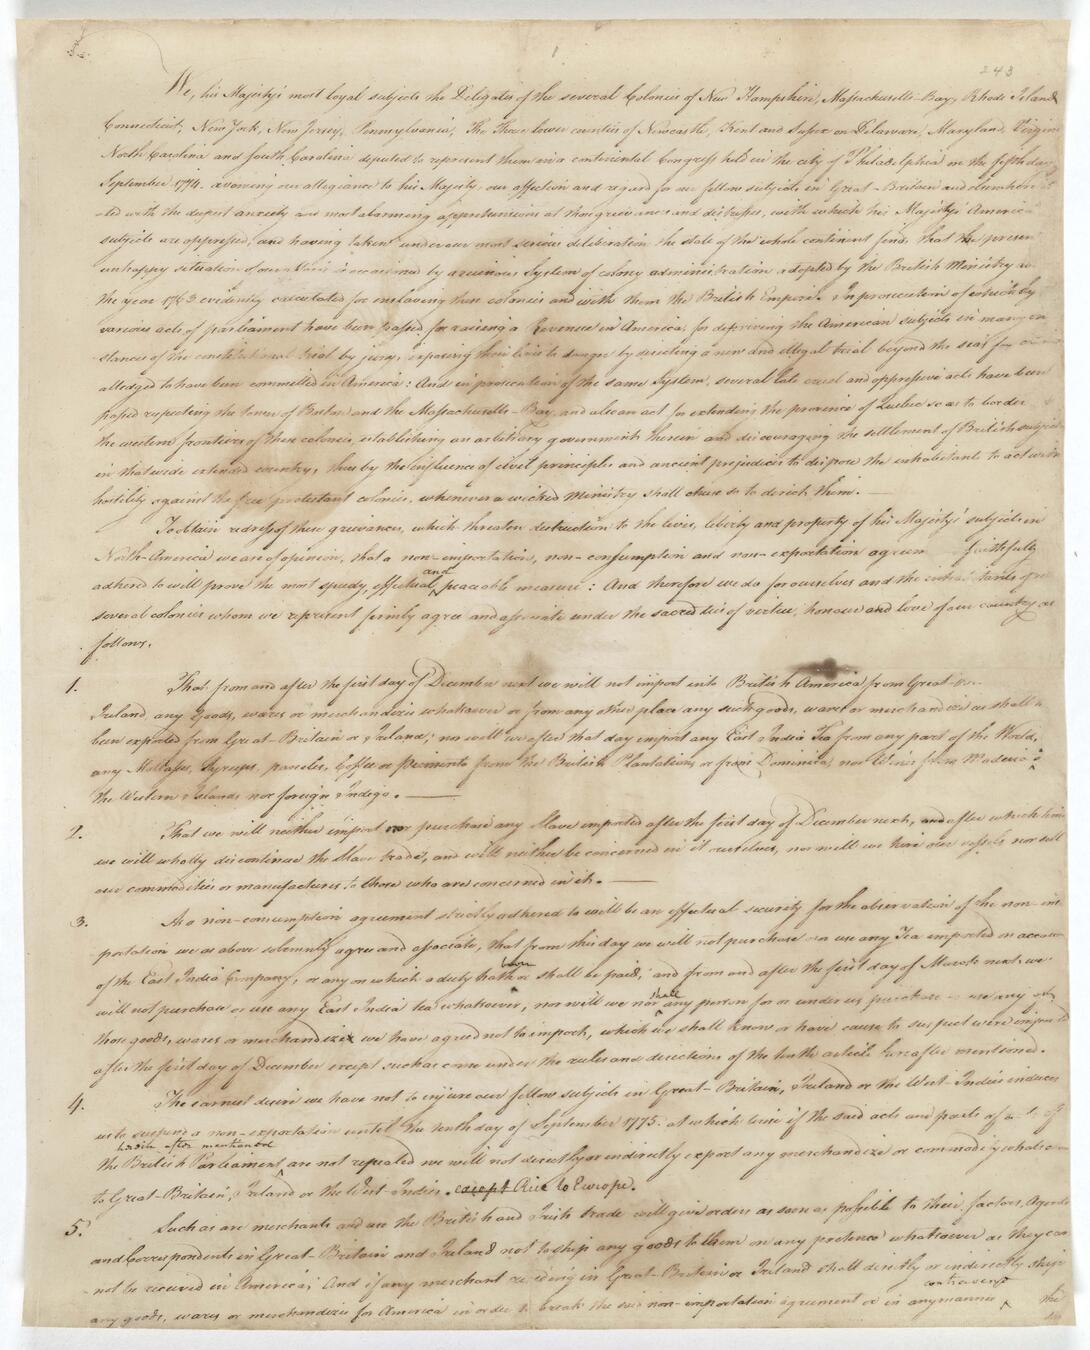 243
We, his Majesty's most loyal subjects the Delegates of the several Colonies of New Hampshire, Massachusetts-Bay, Rhode Island
Connecticut, New York, New Jersey, Pennsylvania, The Three lower counties of Newcastle, Kent and Sussex on Delaware, Maryland, Virginia
North Carolina and South Carolina deputed to represent them in a continental Congress held in the city of Philadelphia on the fifth day
September 1774. avowing our allegiance to his Majesty, our affection and regard for our fellow subjects in Great-Britain and elsewhere
-ted with the deepest anxiety and most alarming apprehensions at those grievances and distresses, with which his Majesty's America
subjects are oppressed, and having taken under our most serious deliberation the state of the whole continent find, that the present
unhappy situation of our affairs is occasioned by a ruinous System of colony administration adopted by the British Ministry
the year 1763 evidently calculated for enslaving these colonies and with them the British Empire. In prosecution of which
various acts of parliament have been passed for raising a Revenue in America, for depriving the American subjects in many in
-stances of the constitutional trial by jury, exposing their lives to danger by directing a new and illegal trial beyond the seas for
alledged to have been committed in America: And in prosecution of the same System, several late cruel and oppressive acts have been
passed respecting the town of Boston and the Massachusetts-Bay, and also an act for extending the province of Quebec so as to border
the western frontiers of these colonies, establishing an arbitrary government therein and discouraging the settlement of British subjects
in that wide extended country; thus by the influence of civil principles and ancient prejudices to dispose the inhabitants to act with
hostility against the free protestant colonies, whenever a wicked Ministry shall chuse so to direct them. —
To obtain redress of these grievances, which threaten destruction to the lives, liberty and property of his Majesty's subjects in
North-America we are of opinion, that a non-importation, non-consumption and non-exportation agreem faithfully
and
adhered to will prove the most speedy, effectual peaceable measure: And therefore we do for ourselves and the inhabitants of
several colonies whom we represent firmly agree and associate under the sacred ties of virtue, honour and love of our country as
follows.
1. That from and after the first day of December next we will not import into British America from Great
Ireland any Goods, wares or merchandizes whatsoever or from any other place any such goods, wares or merchandize as shall
been exported from Great-Britain or Ireland; nor will we after that day import any East India Tea from any part of the World,
any Molasses, Syrups, paneles, Coffee or piemento from the British Plantations or from Dominica, nor Wines from Madeira
the Western Islands nor foreign Indigo. —
2. That we will neither import nor purchase any Slave imported after the first day of December next, after which time
we will wholly discontinue the Slave trade, and will neither be concerned in it ourselves, nor will we hire our vessels nor sell
our commodities or manufactures to those who are concerned in it. —
3. As a non-consumption agreement strictly adhered to will be an effectual security for the observation of the non-im
portation we as above solemnly agree and associate, that from this day we will not purchase or use any Tea imported on account
of the East India Company, or any on which a duty hath or shall be paid; and from and after the first day of March next we
shall
will not purchase or use any East India tea whatsoever; nor will we nor any person for or under us purchase or use any of
those goods, wares or merchandizes we have agreed not to import, which we shall know or have cause to suspect were imported
after the first day of December except such as come under the rules and directions of the tenth article hereafter mentioned.
4. The earnest desire we have not to injure our fellow subjects in Great-Britain, Ireland or the West-Indies induces
us to suspend a non-exportation until the tenth day of September 1775. at which time if the said acts and parts of acts of
herein after mentioned
the British Parliament are not repealed we will not directly or indirectly export any merchandize or commodity whatsoe
to Great-Britain, Ireland or the West-Indies. except Rice to Europe.
5. Such as are merchants and use the British and Irish trade will give orders as soon as possible to their factors, Agents
and Correspondents in Great-Britain and Ireland not to ship any goods to them on any pretence whatsoever as they can
not be received in America; And if any merchant residing in Great-Britain or Ireland shall directly or indirectly ship
contravene
any goods, wares or merchandizes for America in order to break the said non-importation agreement or in any manner the